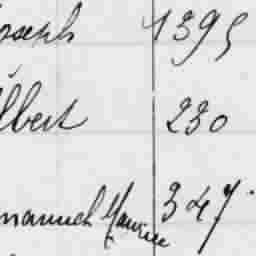 oseph 1395
lbert 230
manuel Maurice 347